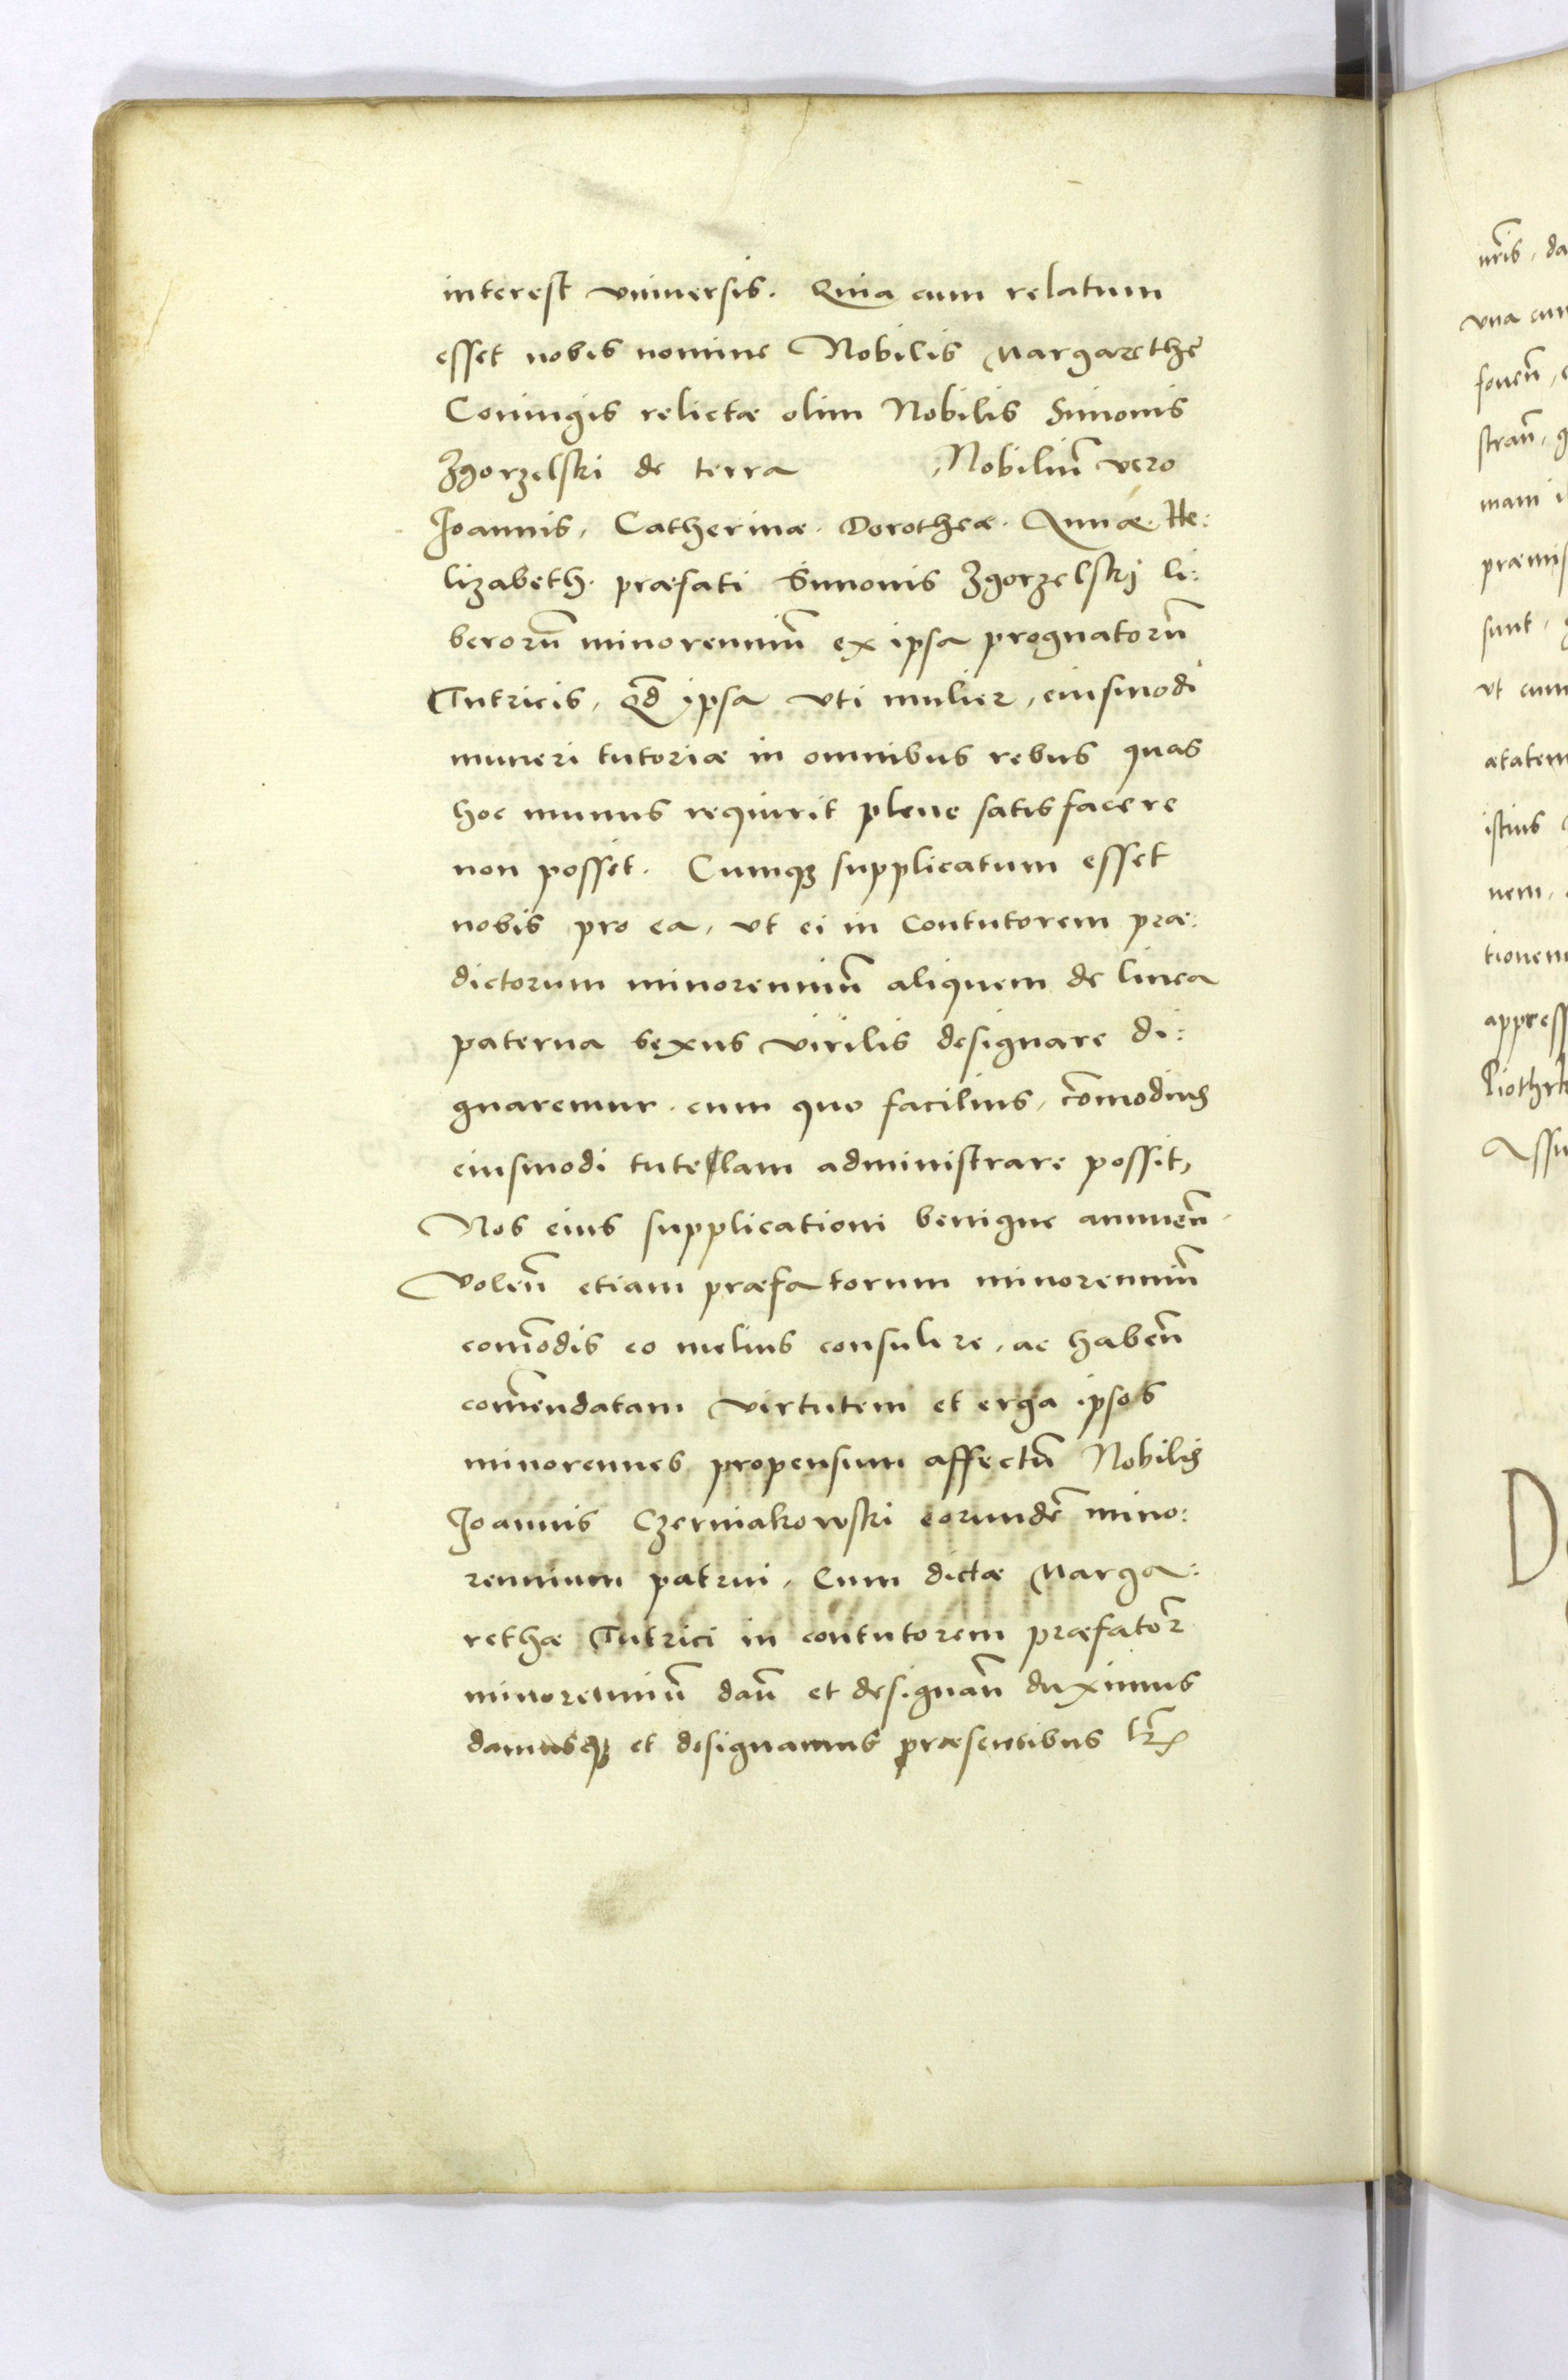 interest vniuersis. Quia cum relatum
esset nobis nomine Nobilis Margarethę
Coniugis relictæ olim Nobilis Simonis
Zgorzelski de terra , Nobiliũ vero
Joannis, Catherinæ. Dorotheæ. Annæ. He:
lizabeth. præfati Simonis Zgorzelskj li:
berorũ minorenniũ ex ipsa prognatorũ
Tutricis, qđ ipsa vti mulier, eiusmodi
muneri tutoriæ in omnibus rebus quas
hoc munus requirit plene satisfacere
non posset. Cumqꝫ supplicatum esset
nobis pro ea, vt ei in Contutorem præ:
dictorum minorenniũ aliquem de linea
paterna sexus virilis designare di:
gnaremur. cum quo facilius, cõmodius
eiusmodi tutelam administrare possit,
Nos eius supplicationi benigne annueñ.
Voleñ etiam præfatorum minorenniũ
com̃odis eo melius consulere, ac habeñ
com̃endatam virtutem et erga ipsos
minorennes propensum affectũ Nobilis
Joannis Czerniakowski eorundẽ mino:
rennium patrui, Eum dictæ Marga:
rethæ Tutrici in contutorem præfator̃
minorenniũ dañ et designañ duximus
damusqꝫ et designamus præsentibus lr̃
nr̃is, da
vna cum
foueñ,
strañ,
mam
præmis
sunt,
vt cum
ætatem
istius
nem,
tionem
appress
Piothrk
Assu
D